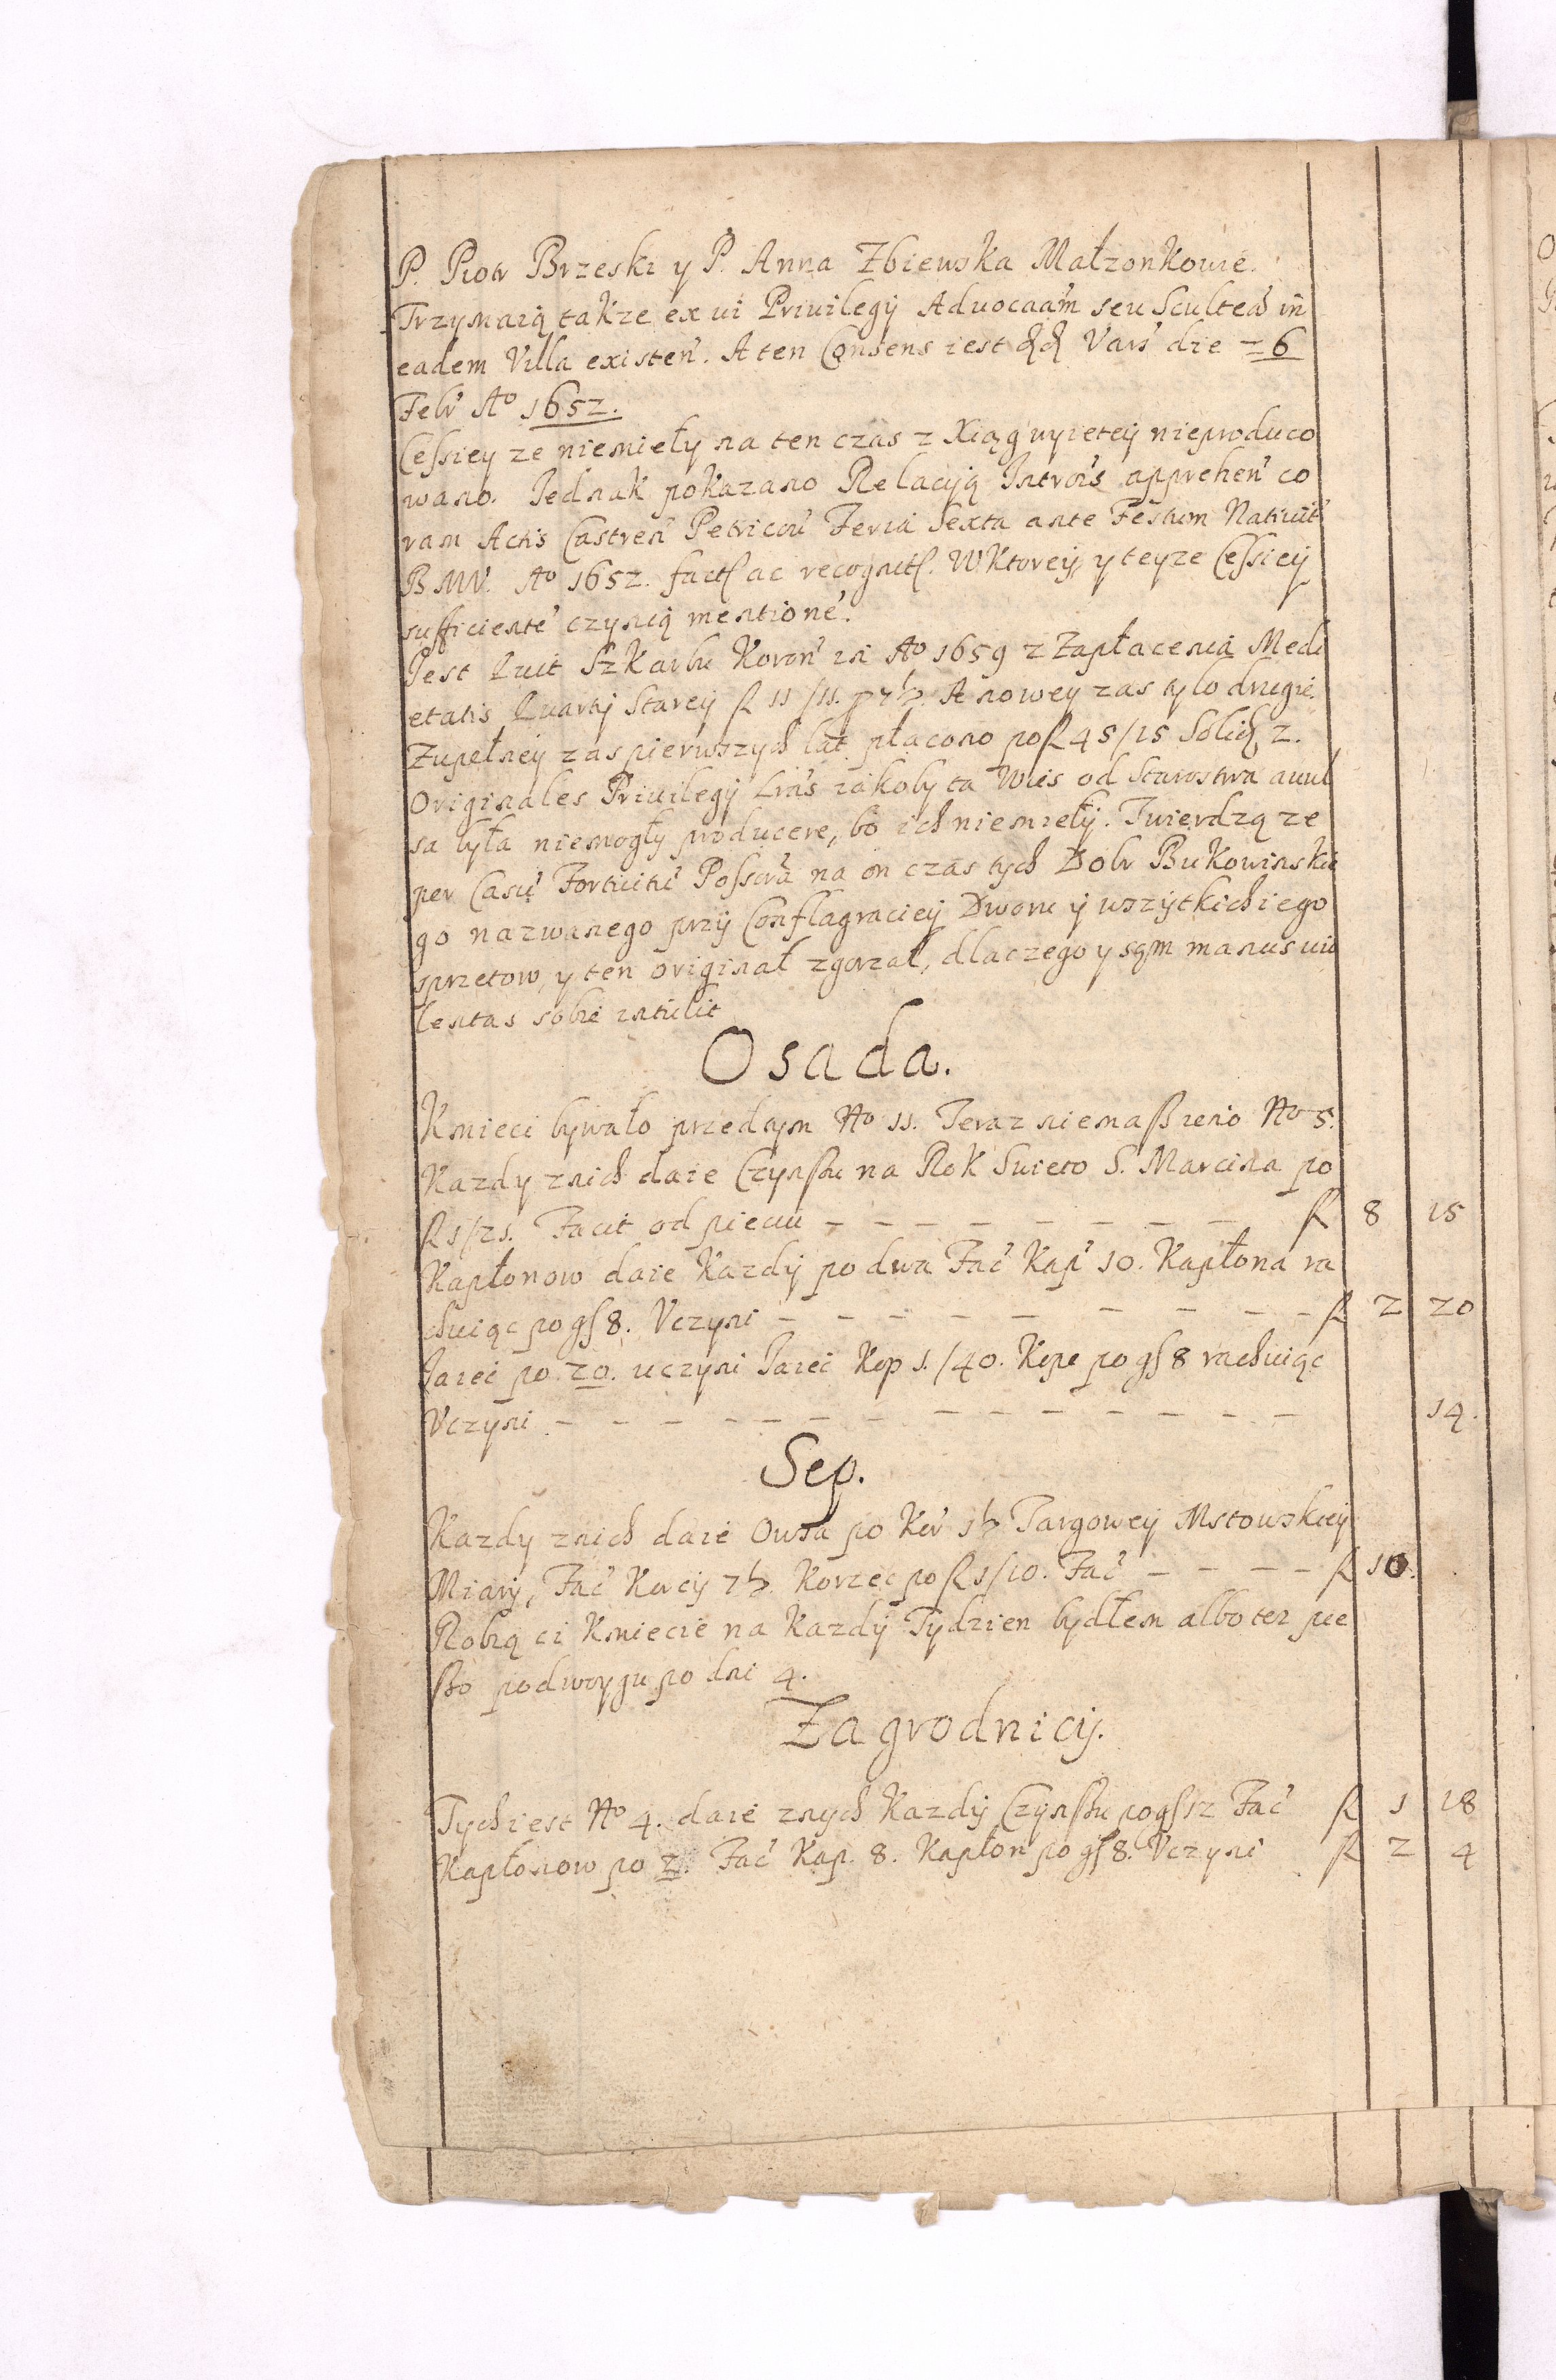 P. Piotr Brzeski y P. Anna Zbiewska Małzonkowie.
Trzymaią takze ex vi Privilegij Advocaam seu Scultea in
eadem Villa existen. A ten Consens iest dd Vars die 6
Febr Aº 1652.
Cessiey ze niemieły na ten czas z Xiąg wyietey nieproduco
wano. Jednak pokazano Relacyą Introis apprehen co
ram Actis Castren Petricou Feria Sexta ante Festum Nativit
BMV. Aº 1652. fact ac recognit. W Ktorey y teyze Cessiey
sufficiente czynią mentione.
Jest Quit Szkarbu Koron in Aº 1659 z Zapłacenia Medi
etatis Quarty Starey fl 11/11. A nowey zas tylo drugie
Zupełney zas pierwszych lat płacono po fl 45/15 Solid 2.
Originales Privilegij Lras iakoby ta Wies od Starostwa avul
sa była niemogły producere, bo ich niemieły. Twierdzą ze
per Casu Fortuitu Possora na on czas tych Dobr Bukowinskie
go nazwanego przy Conflagraciey Dworu y wszytkich iego
sprzetow, y ten originał zgorzał, dlaczego y sąm manus vio
lentas sobie intulit
Osada.
Kmieci bywało przedtym Nº 11. Teraz niemasz ieno Nº 5.
Kazdy znich daie Czynszu na Rok Swieto S. Marcina po
fl 1/21. Facit od pieciu — — — — — — — — fl 8 15
Kapłonow daie Kazdy po dwa Fac Kap 10. Kapłona ra
chuiąc po gs 8. Uczyni — — — — — — — — — fl 2 20
Jaiec po 20. uczyni Jaiec Kop 1./40. Kope po gs 8 rachuiąc
Uczyni — — — — — — — — — — — — — — 14.
Sep.
Kazdy znich daie Owsa po Kor 1½ Targowey Mstowskiey
Miary, Fac Korcy 7½. Korzec po fl 1/10. Fac — — — — fl 10.
Robią ci Kmiecie na Kazdy Tydzien bydłem albo tez pie
szo podwrygu po dni 4.
Zagrodnicy.
Tych iest Nº 4. daie znych Kazdy Czynszu po gs 12 Fac fl 1 18
Kapłonow po 2. Fac Kap. 8. Kapłon po gs 8. Uczyni fl 2 4